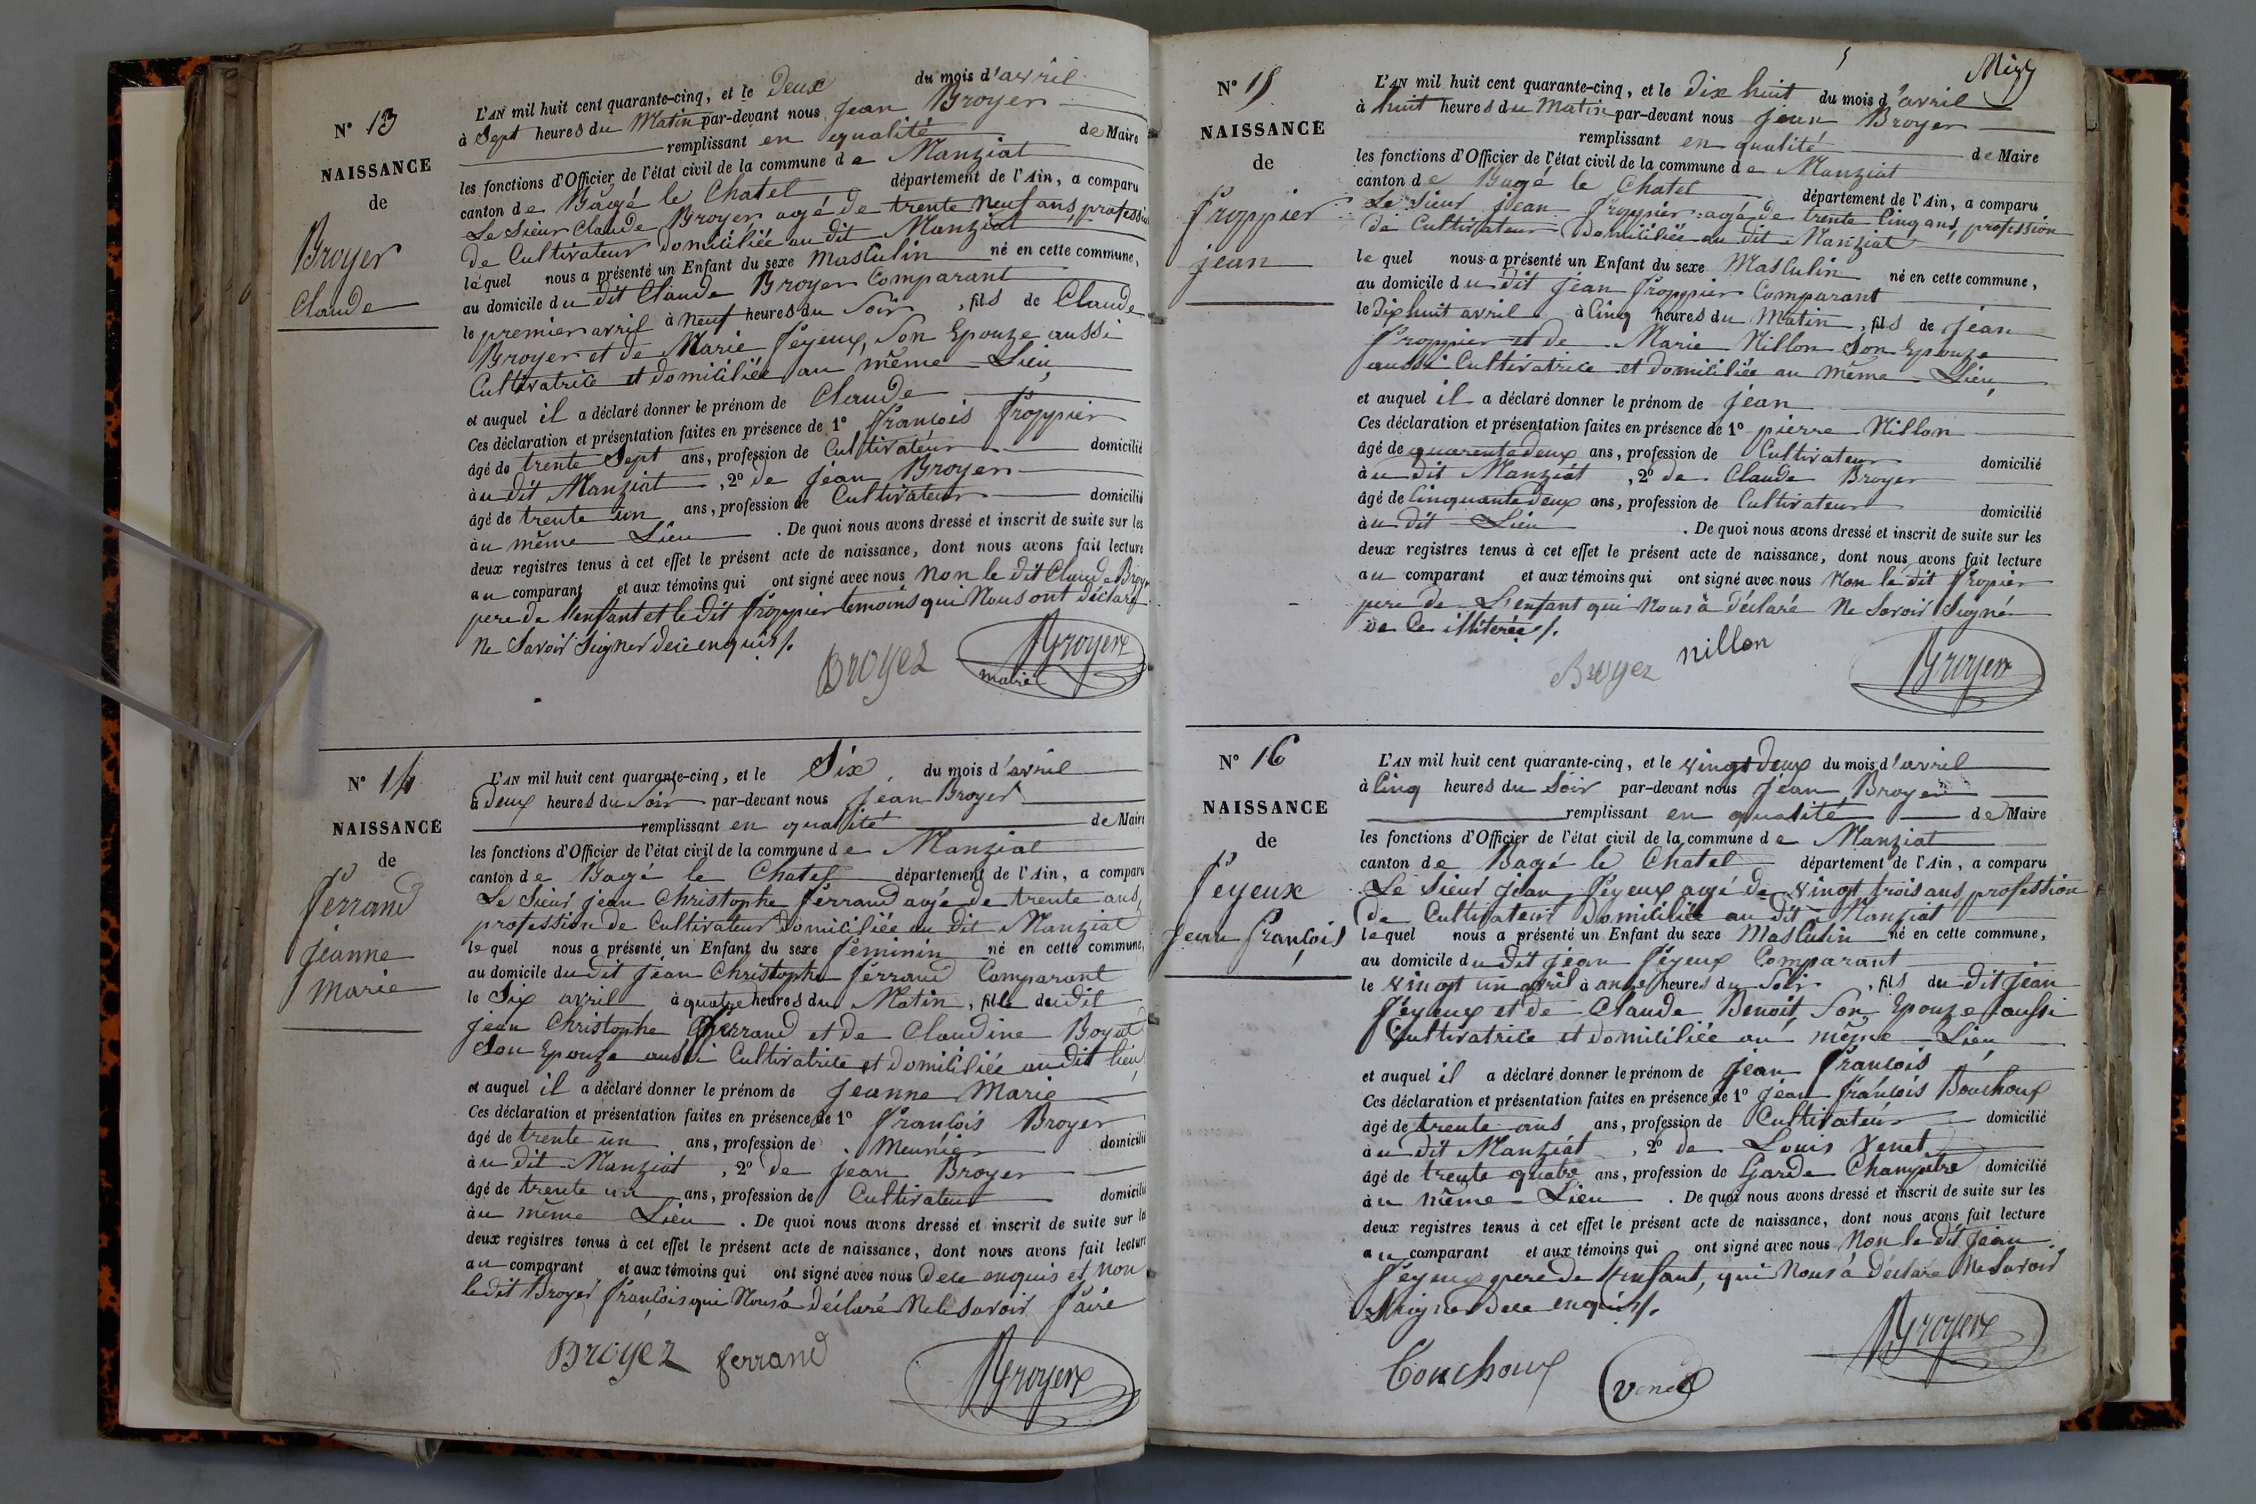 N° 13
NAISSANCE
de
Broyer
Claude
L'AN mil huit cent quarante-cinq, et le Deux du mois d'avril
à Sept heures du Matin par-devant nous Jean Broyer
remplissant en qualité de Maire
les fonctions d'Officier de l'état civil de la commune de Manziat
canton de Bagé le Chatel département de l'Ain, a comparu
Le Sieur Claude Broyer agé de trente neuf ans, profession
de Cultivateur domiciliée au dit Manziat
lequel nous a présenté un Enfant du sexe Masculin né en cette commune,
au domicile du dit Claude Broyer Comparant
le premier avril à Neuf heures du Soir, fils de Claude
Broyer et de Marie Feyeux, Son Epouze aussi
Cultivatrice et domiciliée au même Lieu,
et auquel il a déclaré donner le prénom de Claude
Ces déclaration et présentation faites en présence de 1° François Froppier
âgé de trente Sept ans, profession de Cultivateur domicilié
à u dit Manziat, 2° de Jean Broyer
âgé de trente un ans, profession de Cultivateur domicilié
à u même Lieu. De quoi nous avons dressé et inscrit de suite sur les
deux registres tenus à cet effet le présent acte de naissance, dont nous avons fait lecture
au comparant et aux témoins qui ont signé avec nous Non le dit Claude Broyer
pere de l'enfant et le dit Froppier temoins qui Nous ont déclaré
Ne Savoir Seigner de ce enquis /.
Broyez Broyer
maire
N° 14
NAISSANCE
de
Ferrand
Jeanne
Marie
L'AN mil huit cent quarante-cinq, et le Six du mois d'avril
à Deux heures du Soir par-devant nous Jean Broyer
remplissant en qualité de Maire
les fonctions d'Officier de l'état civil de la commune de Manziat
canton de Bagé le Chatel département de l'Ain, a comparu
Le Sieur Jean Christophe Ferrand agé de trente ans,
profession de Cultivateur domiciliée au dit Manziat
lequel nous a présenté un Enfant du sexe Féminin né en cette commune,
au domicile du dit Jean Christophe Ferrand Comparant
le Six avril à quatre heures du Matin, fille du dit
Jean Christophe Ferrand et de Claudine Boyat
Son Epouze aussi Cultivatrice et domiciliée au dit lieu,
et auquel il a déclaré donner le prénom de Jeanne Marie
Ces déclaration et présentation faites en présence de 1° François Broyer
âgé de trente un ans, profession de Meunier domicilié
à u dit Manziat, 2° de Jean Broyer
âgé de trente un ans, profession de Cultivateur domicilié
à u même Lieu. De quoi nous avons dressé et inscrit de suite sur les
deux registres tenus à cet effet le présent acte de naissance, dont nous avons fait lecture
au comparant et aux témoins qui ont signé avec nous de ce enquis et Non
le dit Broyer François qui Nous a déclaré Ne le Savoir faire
Broyez ferrand Broyer
N° 15
NAISSANCE
de
Froppier
Jean
L'AN mil huit cent quarante-cinq, et le Dix huit du mois d'avril
à huit heures du Matin par-devant nous Jean Broyer
remplissant en qualité de Maire
les fonctions d'Officier de l'état civil de la commune de Manziat
canton de Bagé le Chatel département de l'Ain, a comparu
Le Sieur Jean Froppier agé de trente Cinq ans, profession
de Cultivateur domiciliée au dit Manziat
lequel nous a présenté un Enfant du sexe Masculin né en cette commune,
au domicile du dit Jean Froppier Comparant
le Dix huit avril à Cinq heures du Matin, fils de Jean
Froppier et de Marie Nillon Son Epouze
aussi Cultivatrice et domiciliée au même Lieu,
et auquel il a déclaré donner le prénom de Jean
Ces déclaration et présentation faites en présence de 1° pierre Nillon
âgé de quarente deux ans, profession de Cultivateur domicilié
à u dit Manziat, 2° de Claude Broyer
âgé de Cinquante deux ans, profession de Cultivateur domicilié
à u dit Lieu. De quoi nous avons dressé et inscrit de suite sur les
deux registres tenus à cet effet le présent acte de naissance, dont nous avons fait lecture
au comparant et aux témoins qui ont signé avec nous Non le dit Fropier
pere de L'enfant qui Nous à déclaré Ne Savoir Seigné
de Ce illiterée /.
Broyez nillon Broyer
N° 16
NAISSANCE
de
Feyeux
Jean François
L'AN mil huit cent quarante-cinq, et le vingt Deux du mois d'avril
à Cinq heures du Soir par-devant nous Jean Broyer
remplissant en qualité de Maire
les fonctions d'Officier de l'état civil de la commune de Manziat
canton de Bagé le Chatel département de l'Ain, a comparu
Le Sieur Jean Feyeux agé de vingt trois ans profession
de Cultivateur Domiciliée au dit Manziat
lequel nous a présenté un Enfant du sexe Masculin né en cette commune,
au domicile du dit Jean Feyeux Comparant
le vingt un avril à onze heures du Soir, fils du dit Jean
Feyeux et de Claude Benoit, Son Epouze aussi
Cultivatrice et domiciliée au même Lieu,
et auquel il a déclaré donner le prénom de Jean François
Ces déclaration et présentation faites en présence de 1° Jean François Bouchoux
âgé de trente ans ans, profession de Cultivateur domicilié
à u dit Manziat, 2° de Louis Venet
âgé de trente quatre ans, profession de Garde Champetre domicilié
à u même Lieu. De quoi nous avons dressé et inscrit de suite sur les
deux registres tenus à cet effet le présent acte de naissance, dont nous avons fait lecture
au comparant et aux témoins qui ont signé avec nous Non le dit Jean
Feyeux pere de l'enfant, qui Nous à déclaré Ne Savoir
Seigner de ce enquis /.
Couchoux Venet Broyer